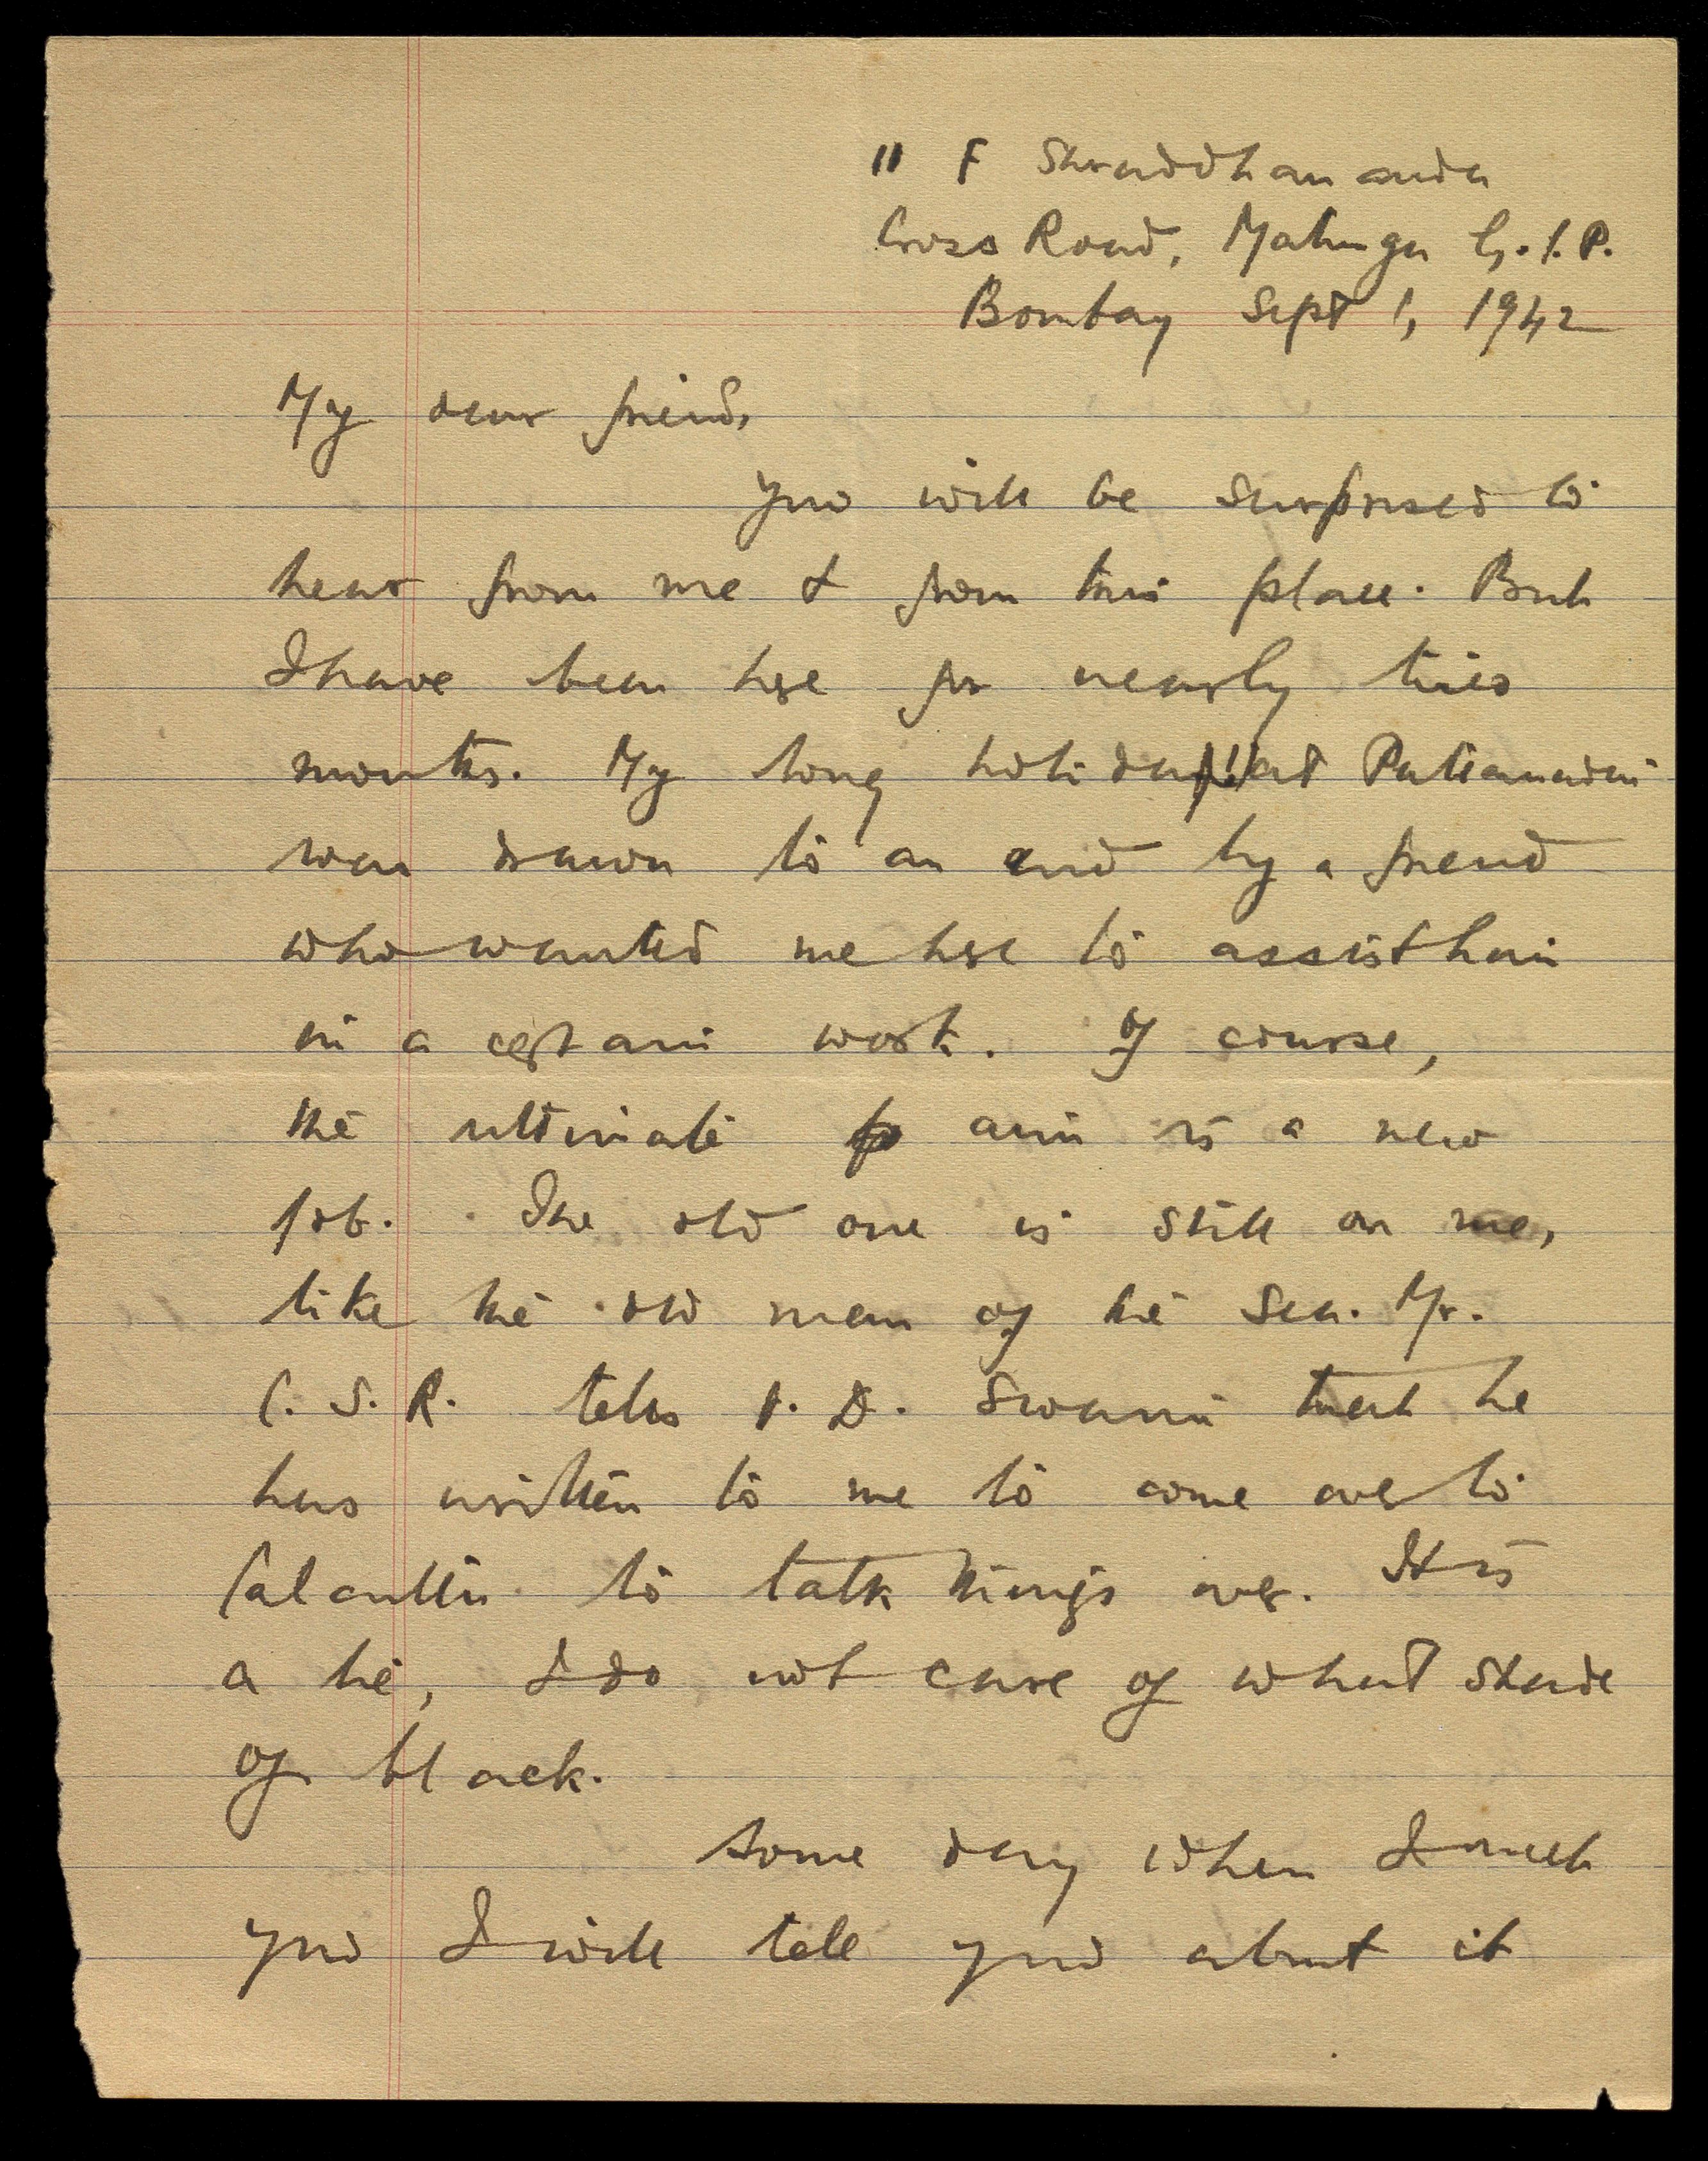 11 F Shraddhananda
Cross Road, Matunga G.I.P.
Bombay Sept 1, 1942
My dear friend,
You will be surprised to
hear from me & from this place. But
I have been here for nearly two
months. My long holiday at Pattamadai
was drawn to an end by a friend
who wanted me here to assist him
in a certain work. Of course,
the ultimate aim is a new
job. The old one is still on me,
like the old man of the sea. Mr.
C. S. R. tells P. D. Swami that he
has written to me to come over to
Calcutta to talk things over. It is
a lie, I do not care of what shade
of black.
Some day when I meet
you I will tell you about it